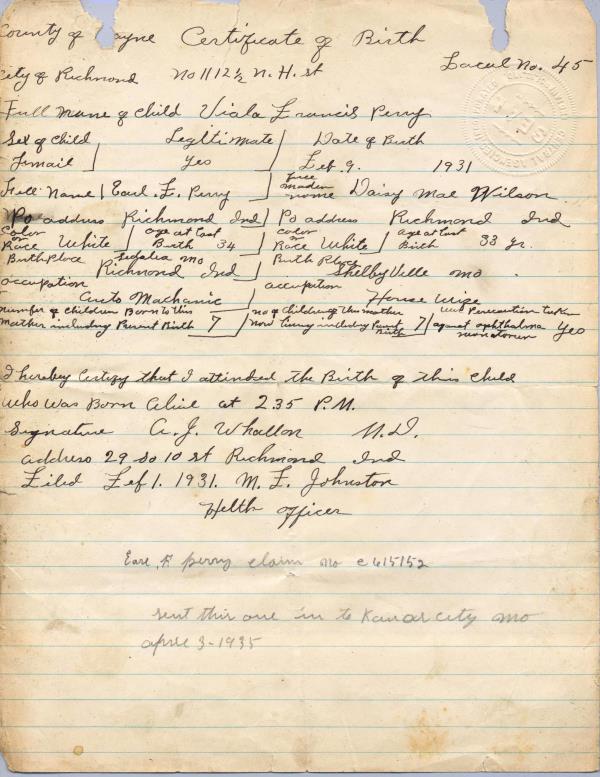 County of ayne Certificate of Birth
Local No. 45
City of Richmond No 1112½ N. H. st
Full Name of Child Viala Francis Perry
Sex of Child Legitimate Date of Birth
Femail Yes Feb 9. 1931
Full Name Earl. F. Perry Full maden name Daisy Mae Wilson
Po address Richmond Ind Po address Richmond Ind
Color or Race White age at last Birth 34 color or Race White age at last Birth 33 yr.
Birth Place Sedalia Mo Birth Place Shelbyville Mo
Richmond Ind
occupation occupation
Auto Machanic House Wife
number of children Born to this Mother including Present Birth 7 no of Children of this mother Now living including Present Birth 7 was Percaution taken against ophthalma neonatorum Yes
I hereby Certify that I attended the Birth of this Child
who was Born alive at 2 35 P.M.
Signature A. J. Whallon M.D.
address 29 So 10 st Richmond Ind
Filed Feb 1. 1931. M. F. Johnston
Helth officer
Earl, F perry claim no c 615152
sent this one in to Kansas city mo
april 3-1935